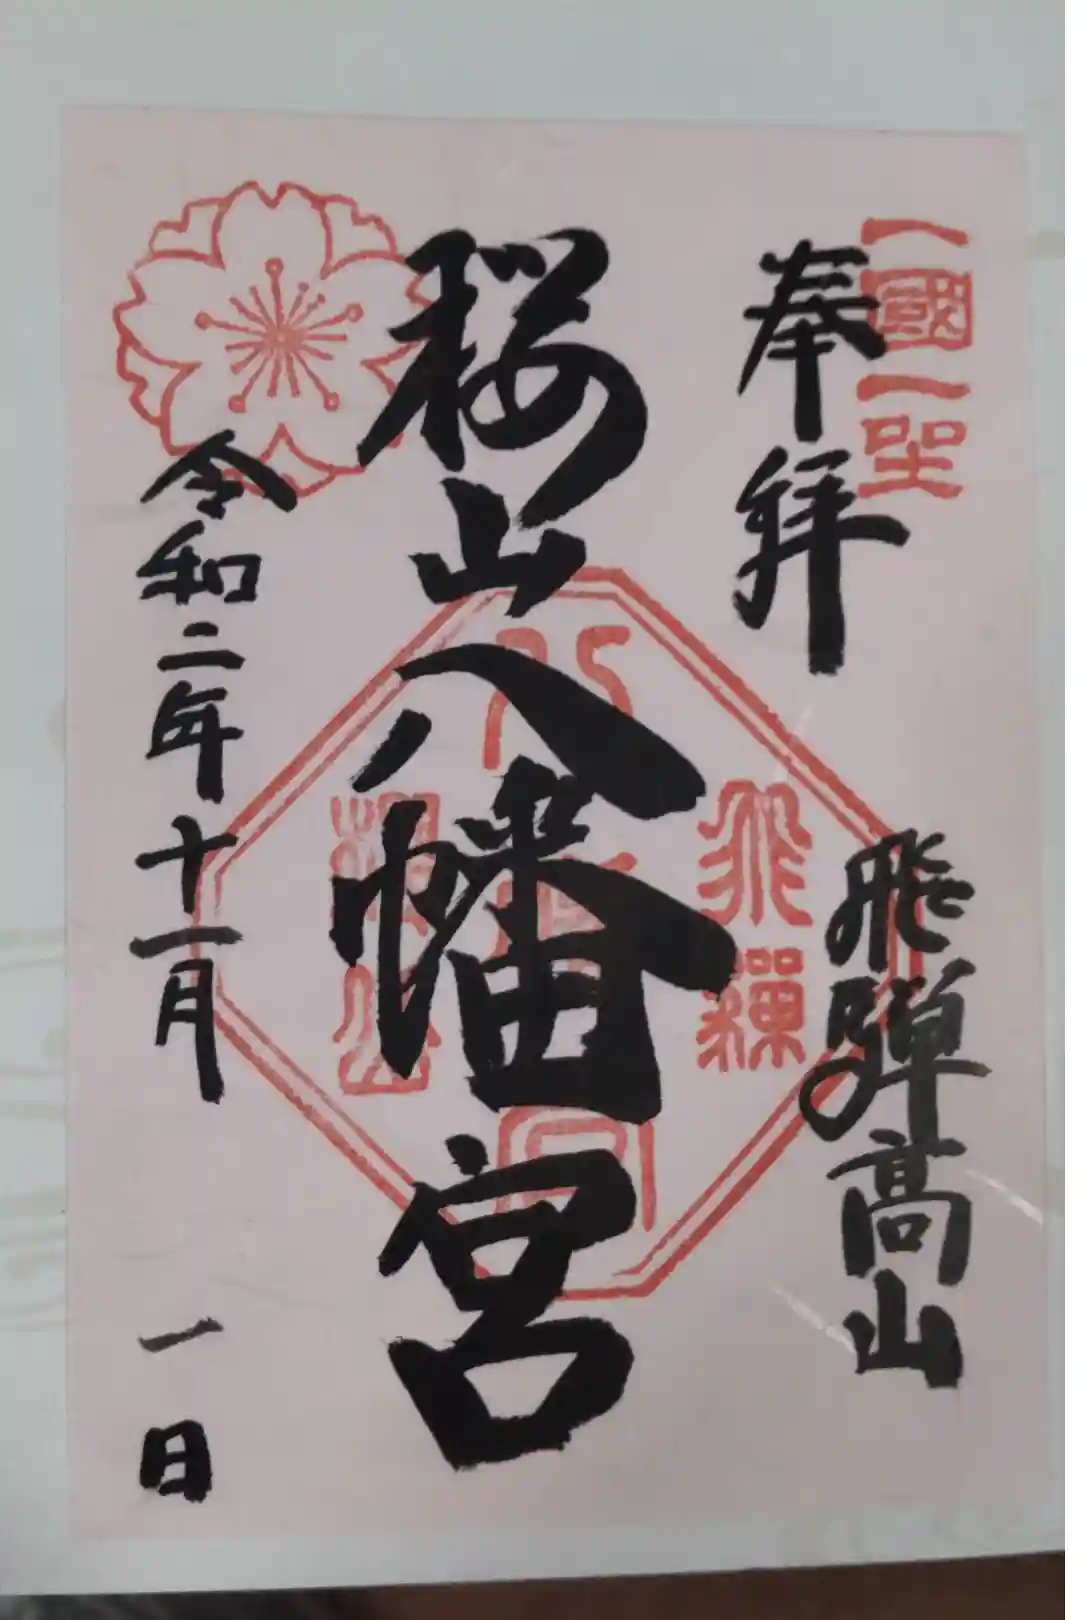 一國一聖
奉拝
飛騨高山
桜山八幡宮
飛騨
令和二年十一月
一日